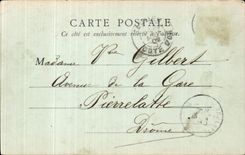 CARTE POSTALE
Ce côté est exclusivement réservé à l'adresse.
Madame Vve Gilbert
Avenue de la Gare
Pierrelatte
Drôme